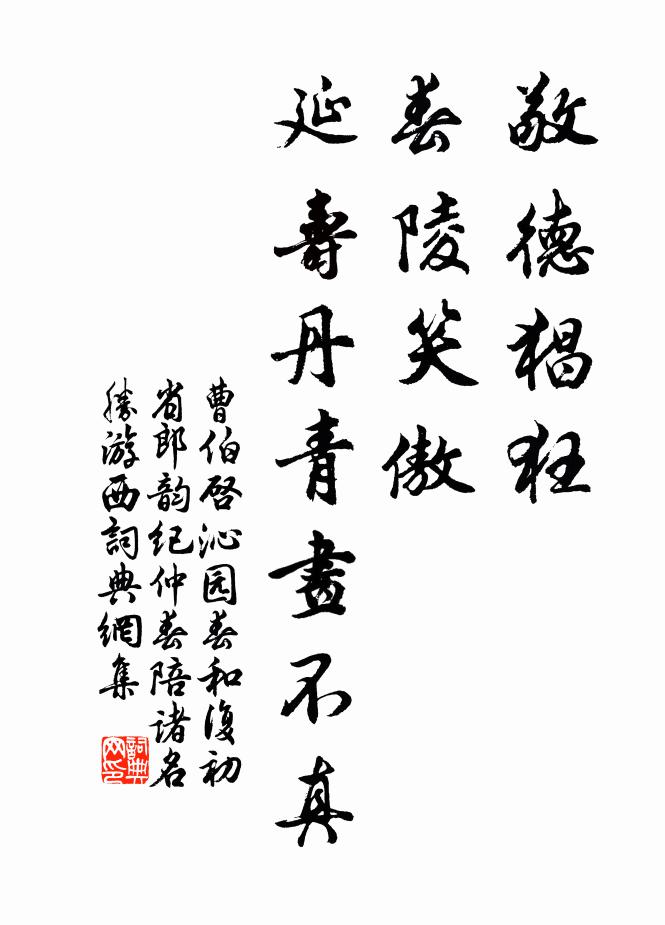 敬德猖狂
春陵笑傲
延壽丹青畫不真
曹伯啓沁园春和復初
省郎韵纪仲春陪诸名
勝游西詞典網集
詞典网印